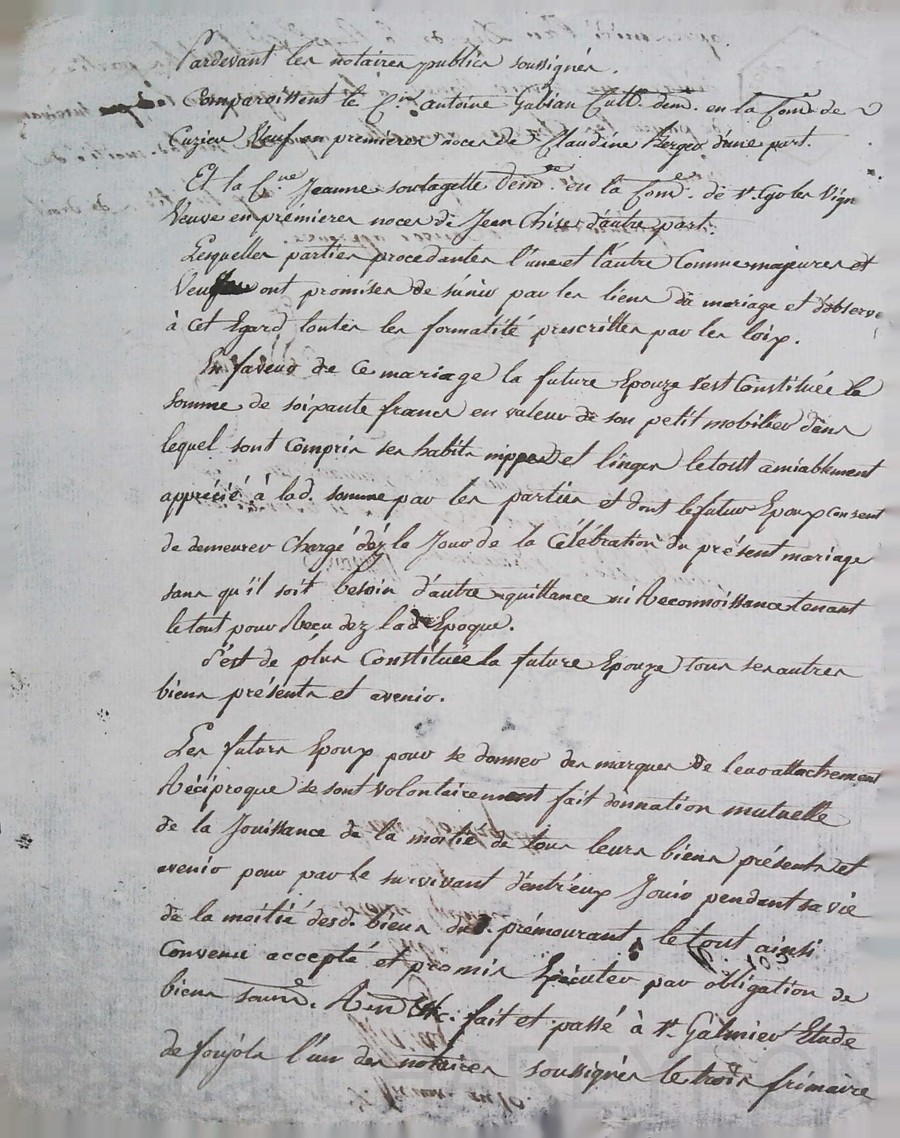 Pardevant les notaires publics soussignés.
Comparoissent le Cⁱᵉⁿ antoine Gabian Cultᵣ demᵗ. en la Comᵉ de
Cuzieu Veuf en premieres noces de Claudine Berger d'une part.
Et la Cⁿᵉ Jeanne soulagette demᵗᵉ. en la Comᵉ. de sᵗ. Cyr les Vign
Veuve en premieres noces de Jean Chize d'autre part.
Lesquelles parties procedantes l'une et l'autre Comme majeures et
Veufs ont promises de s'unir par les liens du mariage et d'observe
à cet Egard toutes les formalité prescrittes par les loix.
En faveur de ce mariage la future Epouze s'est Constituée la
somme de soixante francs en valeur de son petit mobilier dans
lequel sont compris ses habits nippes et linges le tout amiablement
apprécié à lad. somme par les parties et dont le futur Epoux consent
de demeurer chargé dez le Jour de la Célébration du présent mariage
sans qu'il soit besoin d'autre quittance ni Reconnoissance tenant
le tout pour Recu dez lad. Epoque.
s'est de plus Constituée la future Epouze tous ses autres
biens présents et avenir.
Les futurs Epoux pour se donner des marques de leur attachement
Réciproque se sont volontairement fait donnation mutuelle
de la Jouissance de la moitié de tous leurs biens présents et
avenir pour par le survivant d'entr'eux Jouir pendant sa vie
de la moitié desd. biens du prémourant, le tout ainsi
convenu accepté et promis Exécuter par obligation de
biens soumᵒ. Ren Etc: fait et passé à sᵗ. Galmier Etude
de foujols l'un des notaires soussignés le trois frimaire